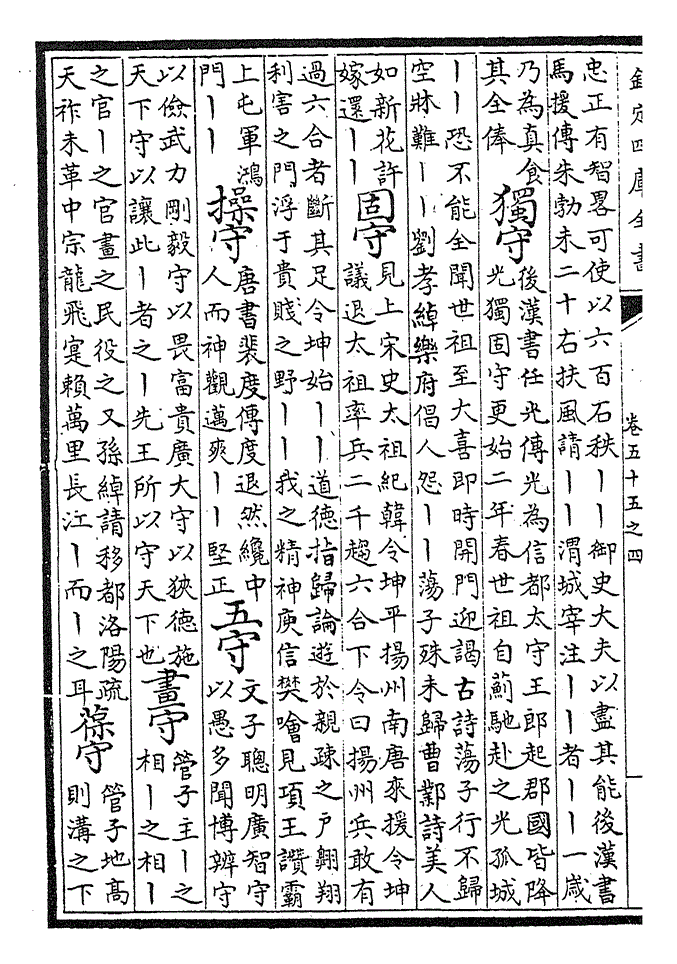 欽定四庫全書
卷五十五之四
忠正有智畧可使以六百石秩丨丨御史大夫以盡其能後漢書
馬援傳朱勃未二十右扶風請丨丨渭城宰注丨丨者丨丨一歲
乃為真食
其全俸
獨守
後漢書任光傳光為信都太守王郎起郡國皆降
光獨固守更始二年春世祖自薊馳赴之光孤城
丨丨恐不能全聞世祖至大喜即時開門迎謁古詩蕩子行不歸
空牀難丨丨劉孝綽樂府倡人怨丨丨蕩子殊未歸曹鄴詩美人
如新花許
嫁還丨丨
固守
見上宋史太祖紀韓令坤平揚州南唐來援令坤
議退太祖率兵二千趨六合下令曰揚州兵敢有
過六合者斷其足令坤始丨丨道德指歸論遊於親疎之戶翺翔
利害之門浮于貴賤之野丨丨丨我之精神庾信樊噲見項王讚霸
上屯軍鴻
門丨丨
操守
唐書裴度傳度退然纔中
人而神觀邁爽丨丨堅正
五守
文子聰明廣智守
以愚多聞博辨守
以儉武力剛毅守以畏富貴廣大守以狹德施
天下守以讓此丨者之丨先王所以守天下也
畫守
管子主丨之
相丨之相丨
之官丨之官畫之民役之又孫綽請移都洛陽疏
天祚未革中宗龍飛寔賴萬里長江丨而丨之耳
葆守
管子地高
則溝之下